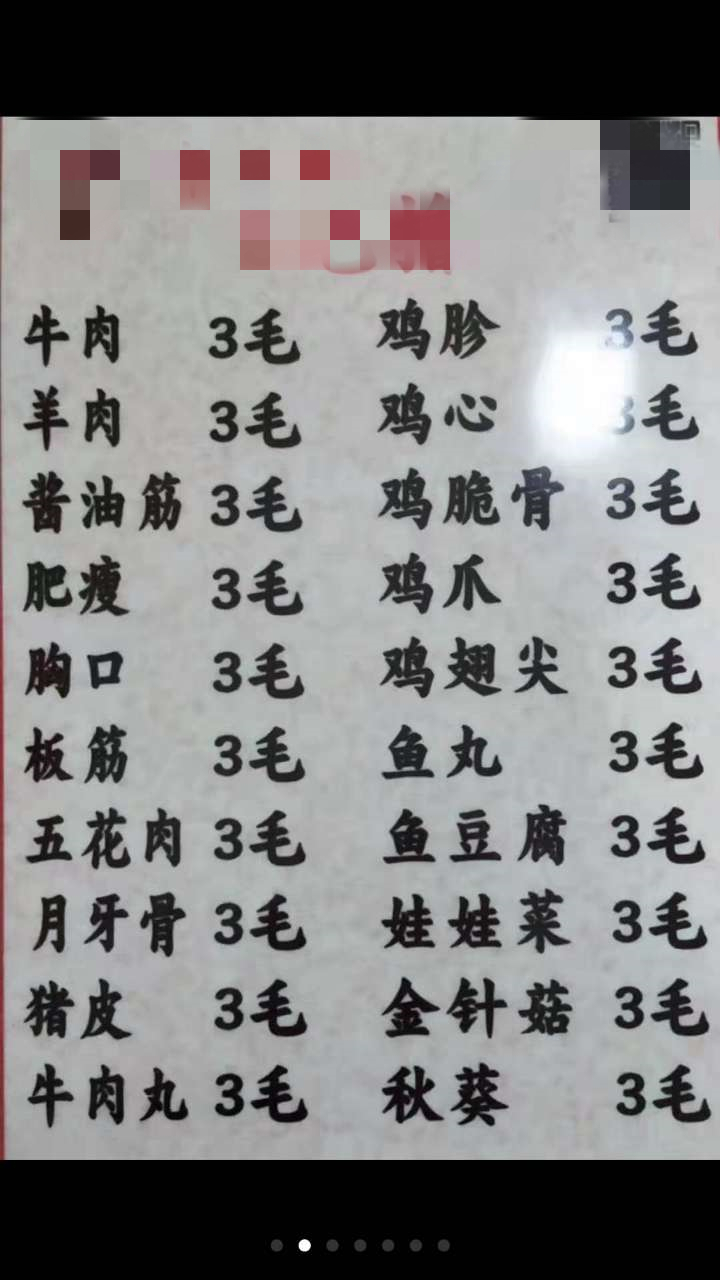 牛肉 3毛 鸡胗 3毛
羊肉 3毛 鸡心 3毛
酱油筋 3毛 鸡脆骨 3毛
肥瘦 3毛 鸡爪 3毛
胸口 3毛 鸡翅尖 3毛
板筋 3毛 鱼丸 3毛
五花肉 3毛 鱼豆腐 3毛
月牙骨 3毛 娃娃菜 3毛
猪皮 3毛 金针菇 3毛
牛肉丸 3毛 秋葵 3毛